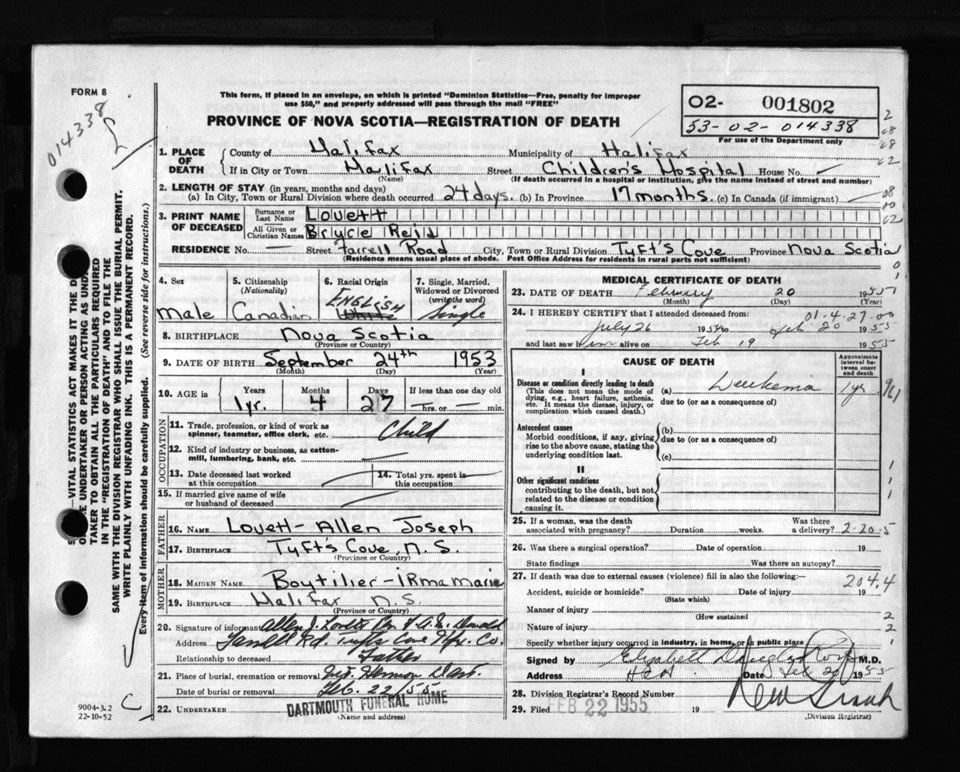 FORM 8
014338
This form, if placed in an envelope, on which is printed "Dominion Statistics—Free, penalty for improper
use $50," and properly addressed will pass through the mail "FREE"
PROVINCE OF NOVA SCOTIA—REGISTRATION OF DEATH
02- 001802
53-02-014338
For use of the Department only
1. PLACE OF DEATH
County of Halifax Municipality of Halifax
If in City or Town Halifax Street Children's Hospital House No.
(Name) (If death occurred in a hospital or institution, give the name instead of street and number)
2. LENGTH OF STAY (in years, months and days)
(a) In City, Town or Rural Division where death occurred 24 days. (b) In Province 17 months. (c) In Canada (if immigrant)
3. PRINT NAME OF DECEASED
Surname or Last Name Lovett
All Given or Christian Names Bryce Reid
RESIDENCE No. — Street Farrell Road City, Town or Rural Division Tyft's Cove Province Nova Scotia
(Residence means usual place of abode. Post Office Address for residents in rural parts not sufficient)
4. Sex
Male
5. Citizenship
(Nationality)
Canadian
6. Racial Origin
ENGLISH
White
7. Single, Married,
Widowed or Divorced
(write the word)
Single
8. BIRTHPLACE Nova Scotia
(Province or Country)
9. DATE OF BIRTH September 24th 1953
(Month) (Day) (Year)
10. AGE in
Years Months Days If less than one day old
1 yr. 4 27 — hrs. or — min.
OCCUPATION
11. Trade, profession, or kind of work as
spinner, teamster, office clerk, etc. Child
12. Kind of industry or business, as cotton-
mill, lumbering, bank, etc.
13. Date deceased last worked
at this occupation
14. Total yrs. spent in
this occupation
15. If married give name of wife
or husband of deceased
FATHER
16. NAME Lovett- Allen Joseph
17. BIRTHPLACE Tyft's Cove, N.S.
(Province or Country)
MOTHER
18. MAIDEN NAME Boytilier-Irma marie
19. BIRTHPLACE Halifax N.S.
(Province or Country)
20. Signature of informant Allen J. Lovett
Address Farrell Rd. Tufts Cove Hfx. Co.
Relationship to deceased Father
21. Place of burial, cremation or removal Mt. Hermon Dart.
Date of burial or removal Feb. 22/55
22. UNDERTAKER DARTMOUTH FUNERAL HOME
(Name and address)
MEDICAL CERTIFICATE OF DEATH
23. DATE OF DEATH February 20 1955
(Month) (Day) (Year)
24. I HEREBY CERTIFY that I attended deceased from: 01-4-27-00
July 26 1954 to Feb 20 1955
and last saw him alive on Feb 19 1955
CAUSE OF DEATH
Approximate interval between onset and death
I
Disease or condition directly leading to death
(This does not mean the mode of
dying, e.g., heart failure, asthenia,
etc. It means the disease, injury, or
complication which caused death.)
(a) Leukemia 1 yr
due to (or as a consequence of)
Antecedent causes
Morbid conditions, if any, giving
rise to the above cause, stating the
underlying condition last.
(b)
due to (or as a consequence of)
(c)
II
Other significant conditions
contributing to the death, but not
related to the disease or condition
causing it.
25. If a woman, was the death
associated with pregnancy? Duration weeks. Was there
a delivery? 2-20-5
26. Was there a surgical operation? Date of operation 19
State findings Was there an autopsy?
27. If death was due to external causes (violence) fill in also the following:—
204.4
Accident, suicide or homicide? Date of injury 19
(State which)
Manner of injury
(How sustained)
Nature of injury
Specify whether injury occurred in industry, in home, or in public place
Signed by Elizabeth M.D.
Address Date Feb 1955
28. Division Registrar's Record Number
29. Filed FEB 22 1955 19
(Division Registrar)
VITAL STATISTICS ACT MAKES IT THE
UNDERTAKER OR PERSON ACTING AS UNDER
TAKER TO OBTAIN ALL THE PARTICULARS REQUIRED
IN THE "REGISTRATION OF DEATH" AND TO FILE THE
SAME WITH THE DIVISION REGISTRAR WHO SHALL ISSUE THE BURIAL PERMIT.
WRITE PLAINLY WITH UNFADING INK. THIS IS A PERMANENT RECORD.
Every item of information should be carefully supplied. (See reverse side for instructions.)
9004-3.2
22-10-52